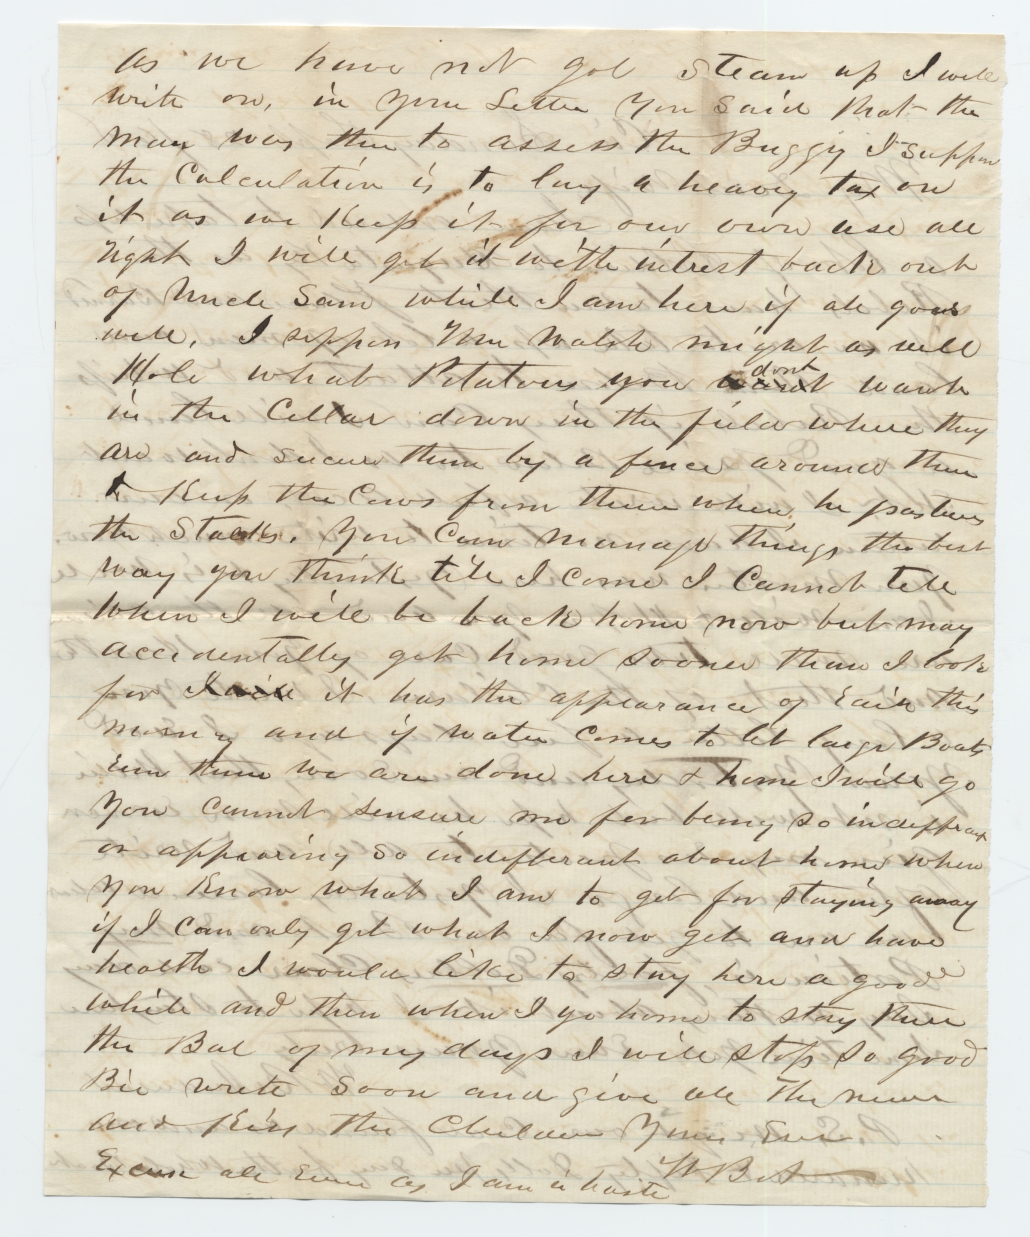 as we have not got steam up I will
write on, in your Letter you said that the
man was there to assess the Buggy I suppose
the Calculation is to lay a heavy tax on
it as we Keep it for our own use all
right I will get it with intrest back out
of Uncle Sam while I am here if all goes
well, I suppose Wm Walsh might as well
Hole what Potatoes you dont want
in the Cellar down in the field where they
are and secure them by a fence around them
to Keep the Cows from them when he pastures
the Stacks. You Can manage things the best
way you think till I come I Cannot tell
when I will be back home now but may
accidentally get home sooner than I look
for it has the appearance of Rain this
morning and if water comes to let large Boats
run then we are done here & home I will go
You cannot sensure me for being so indifferent
or appearing so indifferant about home when
you Know what I am to get for staying away
if I can only get what I now get and have
health I would like to stay here a good
while and then when I go home to stay there
the Bal of my days I will stop so good
Bie write soon and give all the news
and Kiss the Children Yours Ever
W B S
Excuse all Errors as I am in haste